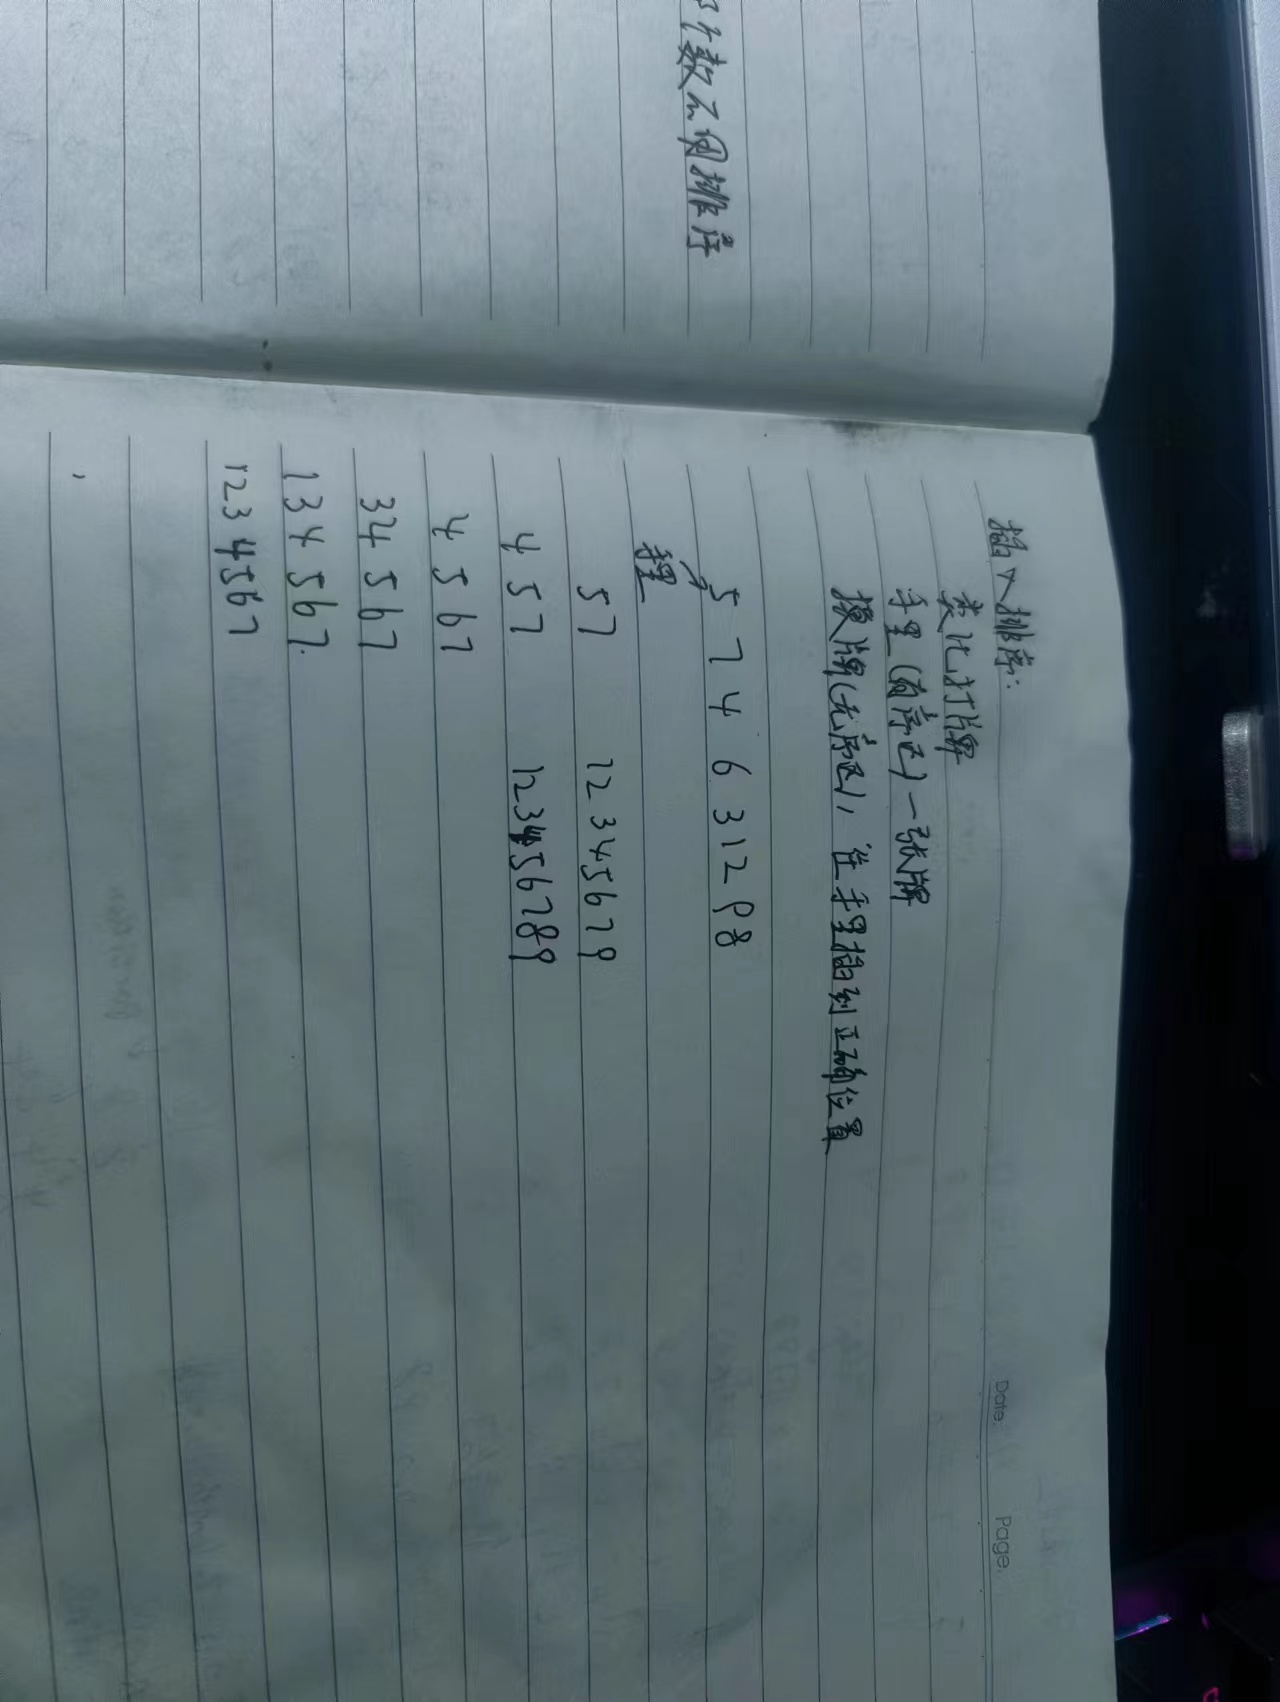 个数不用排序
插入排序:
Date. Page.
类比打牌
手里(有序区)一张牌
摸牌(无序区), 往手里插到正确位置
5 7 4 6 3 1 2 9 8
手里
5 7 1 2 3 4 5 6 7 9
4 5 7 1 2 3 4 5 6 7 8 9
4 5 6 7
3 4 5 6 7
1 3 4 5 6 7.
1 2 3 4 5 6 7